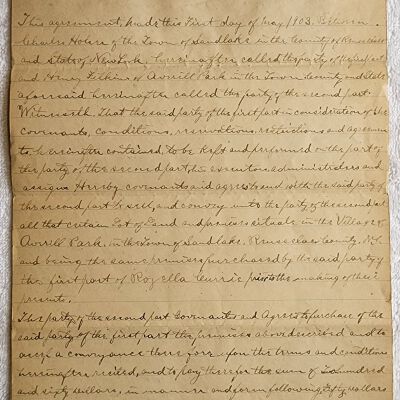 This agreement, made this First day of May 1903. Between
Charles of the Town of Sandlake in the County of Rensselaer
and State of New York, hereinafter called the party of the first part
and Filkins of Averill Park in the Town County and State
aforesaid hereinafter called the party of the second part.
Witnesseth. That the said party of the first part in consideration of the
covenants, conditions, reservations, restrictions and agreements
herein contained, to be kept and performed on the part of
the party of the second part, his executors, administrators and
assigns Hereby covenants and agrees to and with the said party of
the second part to sell, and convey unto the party of the second part
all that certain Lot of Land and premises situate in the Village of
Averill Park, in the Town of Sandlake, Rensselaer County, N.Y.
and being the same premises purchased by the said party of
the first part of Currie prior to the making of these
presents.
The party of the second part Covenants and Agrees to purchase of the
said party of the first part the premises above described and to
accept a conveyance therefor upon the terms and conditions
hereinafter recited, and to pay therefor the sum of hundred
and sixty dollars, in manner and form following fifty dollars